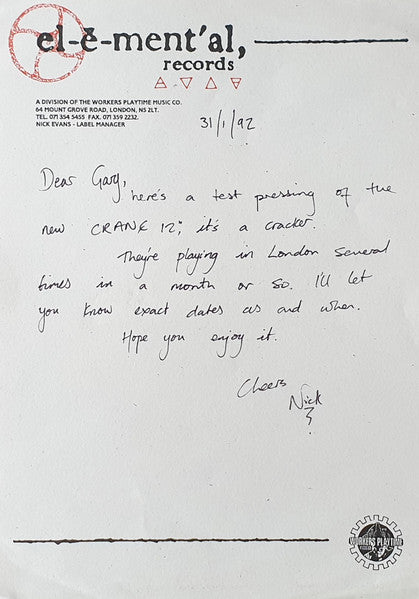 el-ĕ-ment'al,
records
A DIVISION OF THE WORKERS PLAYTIME MUSIC CO.
64 MOUNT GROVE ROAD, LONDON, N5 2LT.
TEL. 071 354 5455 FAX. 071 359 2232.
NICK EVANS - LABEL MANAGER
31/1/92
Dear Gary,
here's a test pressing of the
new CRANE 12"; it's a cracker.
They're playing in London several
times in a month or so. I'll let
you know exact dates as and when.
Hope you enjoy it.
Cheers
Nick
WORKERS PLAYTIME